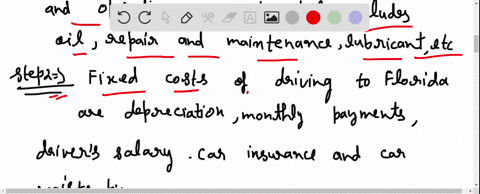 and
ludes
oil, repair and maintenance, lubricant, etc
Step2=> Fixed costs of driving to Florida
are depreciation, monthly payments,
driver's salary. Car insurance and car